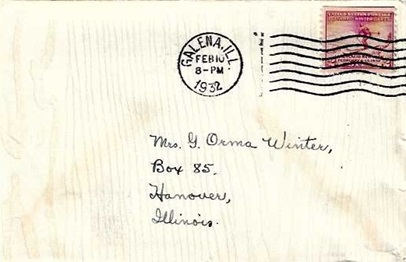 GALENA, ILL.
FEB 10
8-PM
1932
UNITED STATES POSTAGE
Mrs. G. Orma Winter,
Box 85.
Hanover,
Illinois.